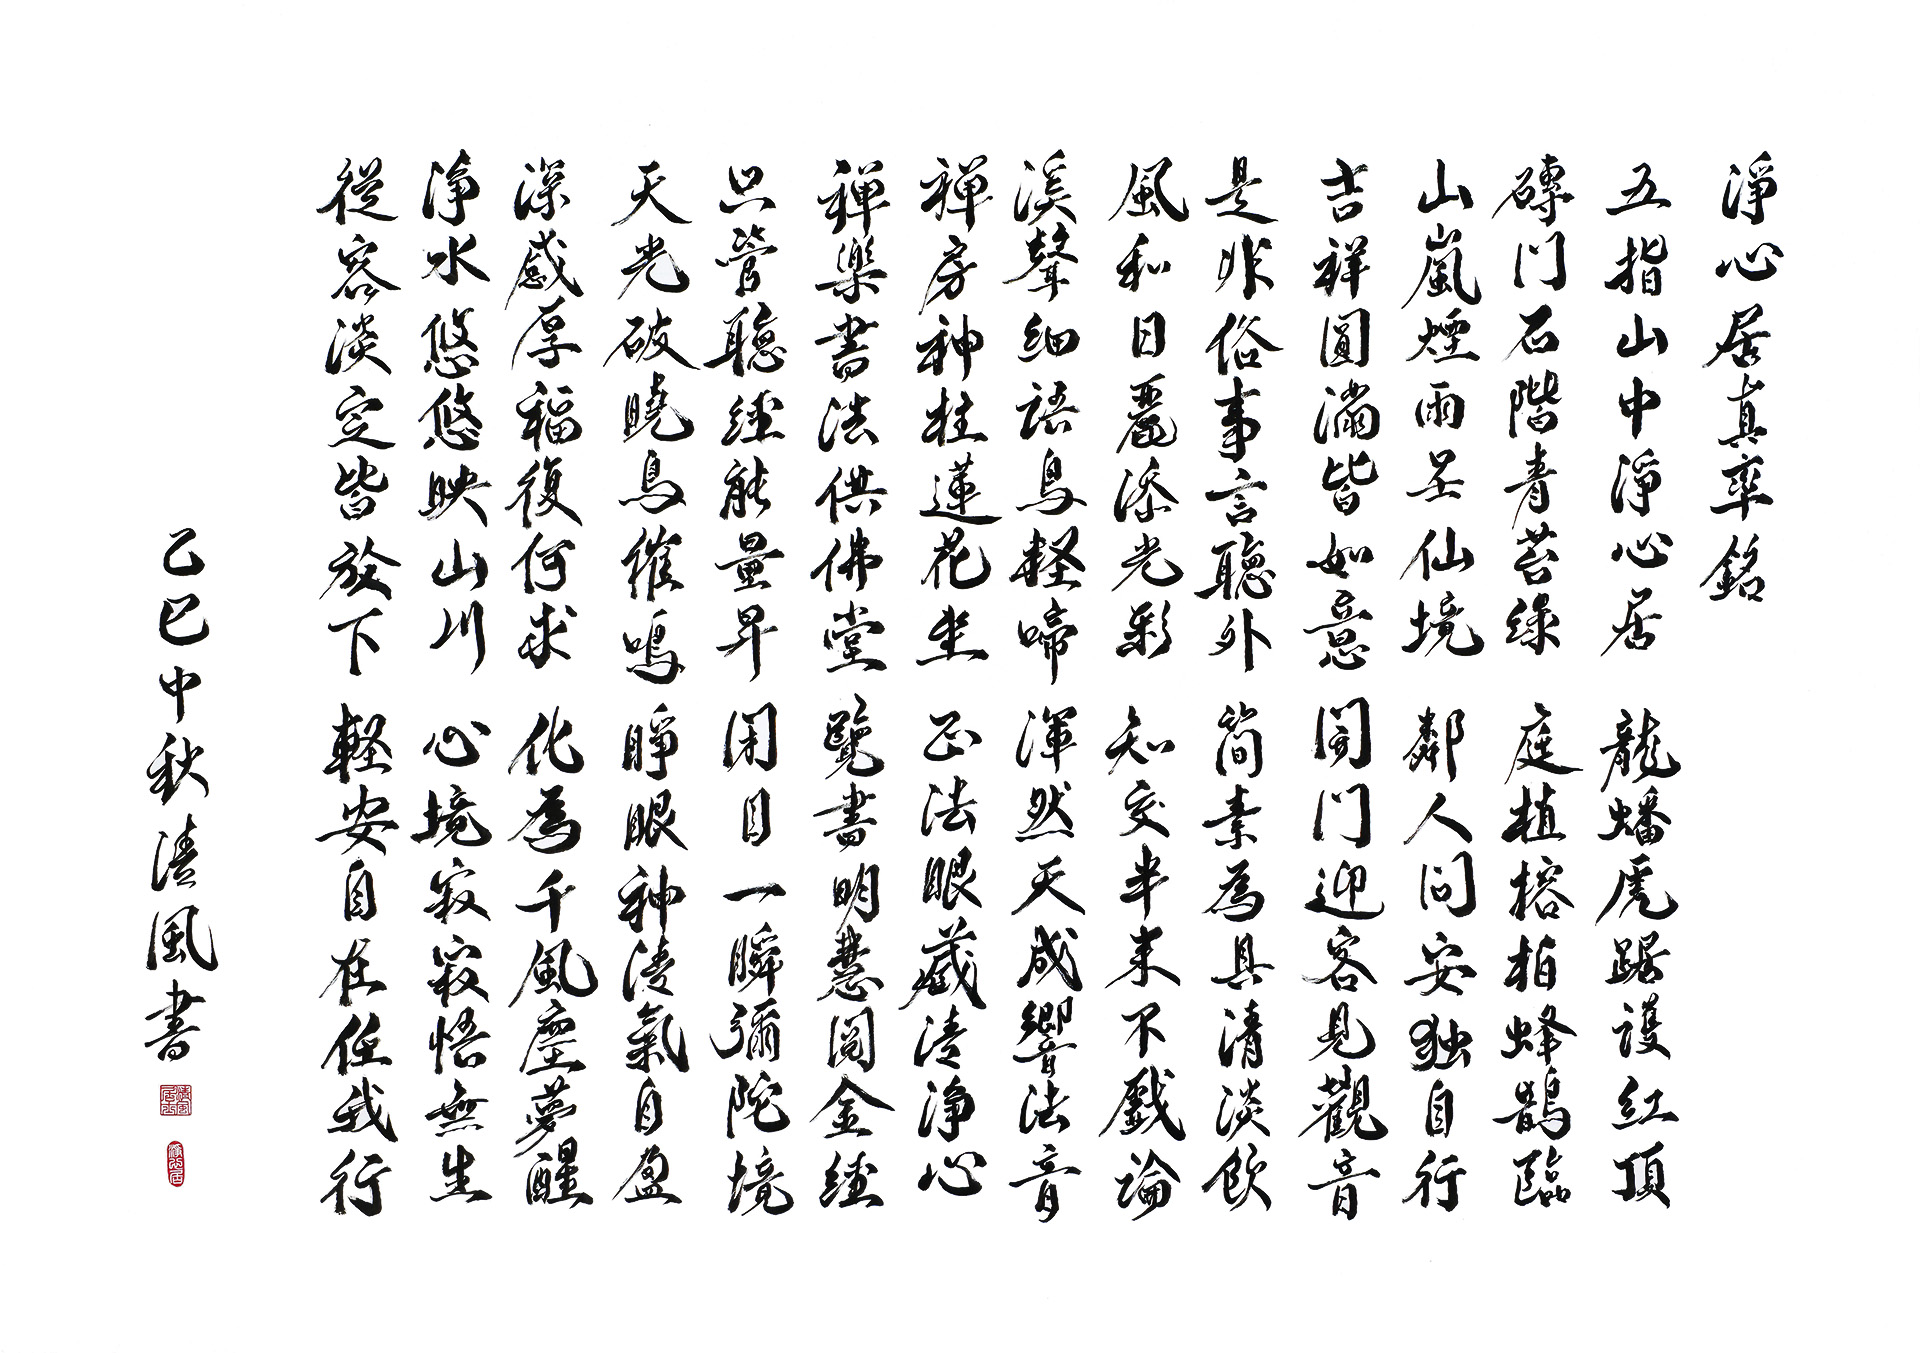 淨心居真率銘
五指山中淨心居 龍蟠虎踞護紅頂
磚門石階青苔綠 庭植榕柏蜂鵲臨
山嵐煙雨若仙境 鄰人問安独自行
吉祥圓滿皆如意 開門迎客見觀音
是非俗事言聽外 簡素為具清淡飲
風和日麗添光彩 知交半来不戲論
溪聲細語鳥輕啼 渾然天成響法音
禪房神柱蓮花坐 正法眼藏清淨心
禪樂書法供佛堂 覽書明慧閱金經
只管聽經能量昇 閉目一瞬彌陀境
天光破曉鳥催鳴 睜眼神清氣自盈
深感厚福復何求 化為千風塵夢醒
淨水悠悠映山川 心境寂寂悟無生
從容淡定皆放下 輕安自在任我行
乙巳中秋清風書